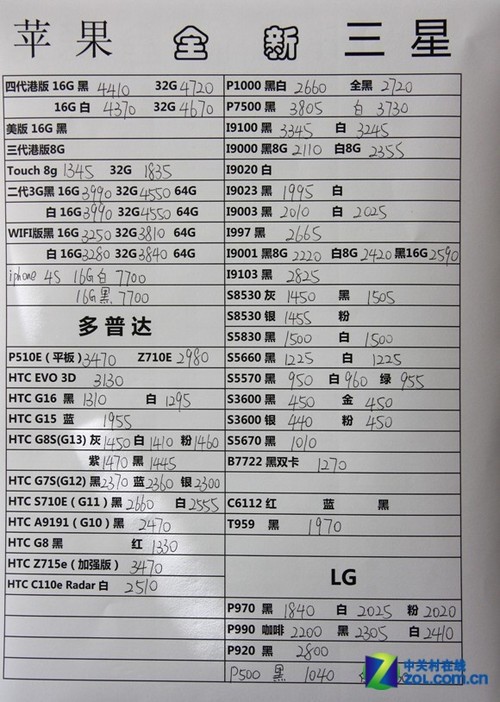 苹果 全新 三星
四代港版 16G 黑 4410 32G 4720
16G 白 4370 32G 4670
美版 16G 黑
三代港版8G
Touch 8g 1345 32G 1835
二代3G黑 16G 3990 32G 4550 64G
白 16G 3990 32G 4550 64G
WIFI版黑 16G 3250 32G 3810 64G
白 16G 3280 32G 3840 64G
iphone 4S 16G 白 7700
16G 黑 7700
多普达
P510E（平板）3470 Z710E 2980
HTC EVO 3D 3130
HTC G16 黑 1310 白 1295
HTC G15 蓝 1955
HTC G8S(G13) 灰 1450 白 1410 粉 1460
紫 1470 黑 1445
HTC G7S(G12) 黑 2370 蓝 2360 银 2300
HTC S710E（G11）黑 2660 白 2555
HTC A9191（G10）黑 2470
HTC G8 黑 红 1330
HTC Z715e（加强版）3470
HTC C110e Radar 白 2510
P1000 黑白 2660 全黑 2720
P7500 黑 3805 白 3730
I9100 黑 3345 白 3245
I9000 黑8G 2110 白8G 2355
I9020 白
I9023 黑 1995 白
I9003 黑 2010 白 2025
I997 黑 2665
I9001 黑8G 2220 白8G 2420 黑16G 2590
I9103 黑 2825
S8530 灰 1450 黑 1505
S8530 银 1455 粉
S5830 黑 1500 白 1500
S5660 黑 1225 白 1225
S5570 黑 950 白 960 绿 955
S3600 黑 450 金 450
S3600 银 440 粉 450
S5670 黑 1010
B7722 黑双卡 1270
C6112 红 蓝 黑
T959 黑 1970
LG
P970 黑 1840 白 2025 粉 2020
P990 咖啡 2200 黑 2305 白 2410
P920 黑 2800
P500 黑 1040
中关村在线
ZOL.COM.CN